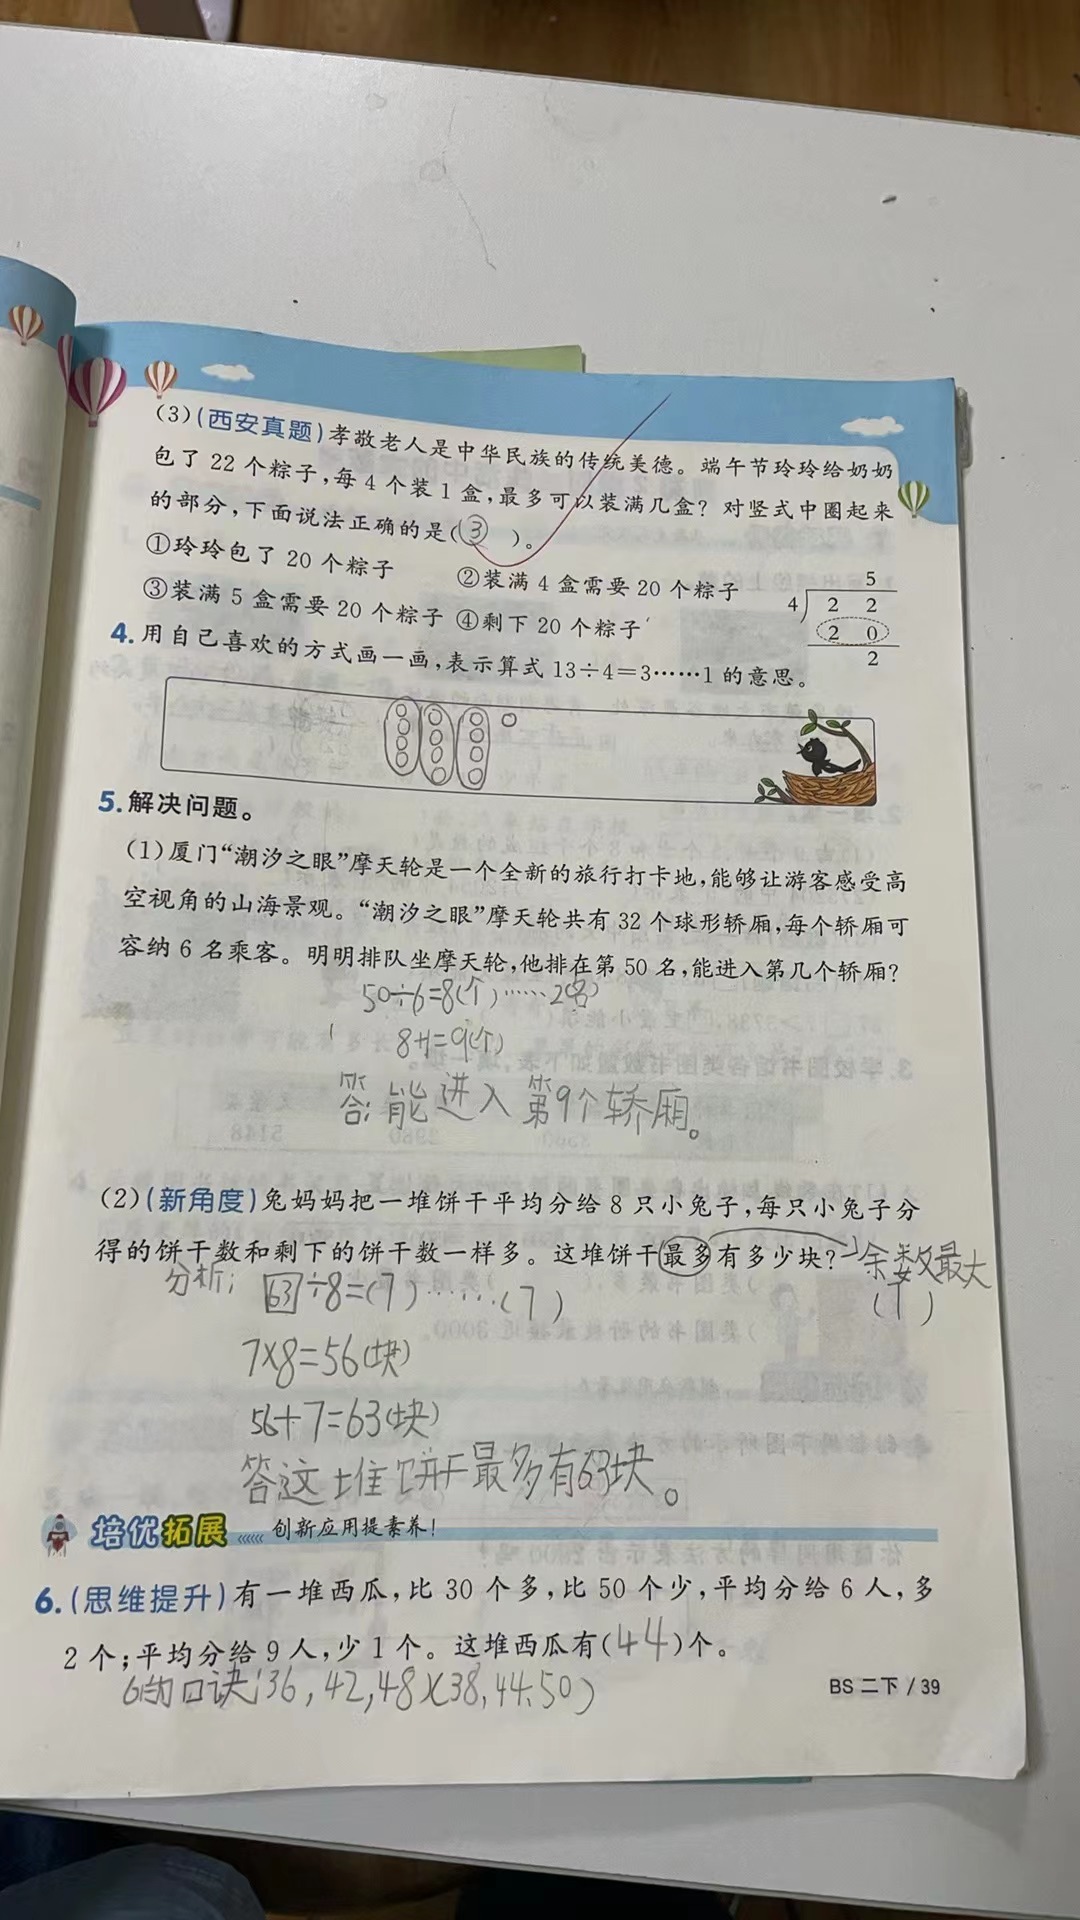 (3)(西安真题)孝敬老人是中华民族的传统美德。端午节玲玲给奶奶
包了22个粽子,每4个装1盒,最多可以装满几盒?对竖式中圈起来
的部分,下面说法正确的是(③)。
①玲玲包了20个粽子 ②装满4盒需要20个粽子
③装满5盒需要20个粽子 ④剩下20个粽子
5
4 2 2
2 0
2
4.用自己喜欢的方式画一画,表示算式13÷4=3……1的意思。
5.解决问题。
(1)厦门“潮汐之眼”摩天轮是一个全新的旅行打卡地,能够让游客感受高
空视角的山海景观。“潮汐之眼”摩天轮共有32个球形轿厢,每个轿厢可
容纳6名乘客。明明排队坐摩天轮,他排在第50名,能进入第几个轿厢?
50÷6=8(个)……2(名)
8+1=9(个)
答:能进入第9个轿厢。
(2)(新角度)兔妈妈把一堆饼干平均分给8只小兔子,每只小兔子分
得的饼干数和剩下的饼干数一样多。这堆饼干最多有多少块?
余数最大
(7)
分析: 63÷8=(7)……(7)
7×8=56(块)
56+7=63(块)
答这堆饼干最多有63块。
培优拓展 创新应用提素养!
6.(思维提升)有一堆西瓜,比30个多,比50个少,平均分给6人,多
2个;平均分给9人,少1个。这堆西瓜有(44)个。
6的口诀:36,42,48(38,44,50)
BS 二下 / 39